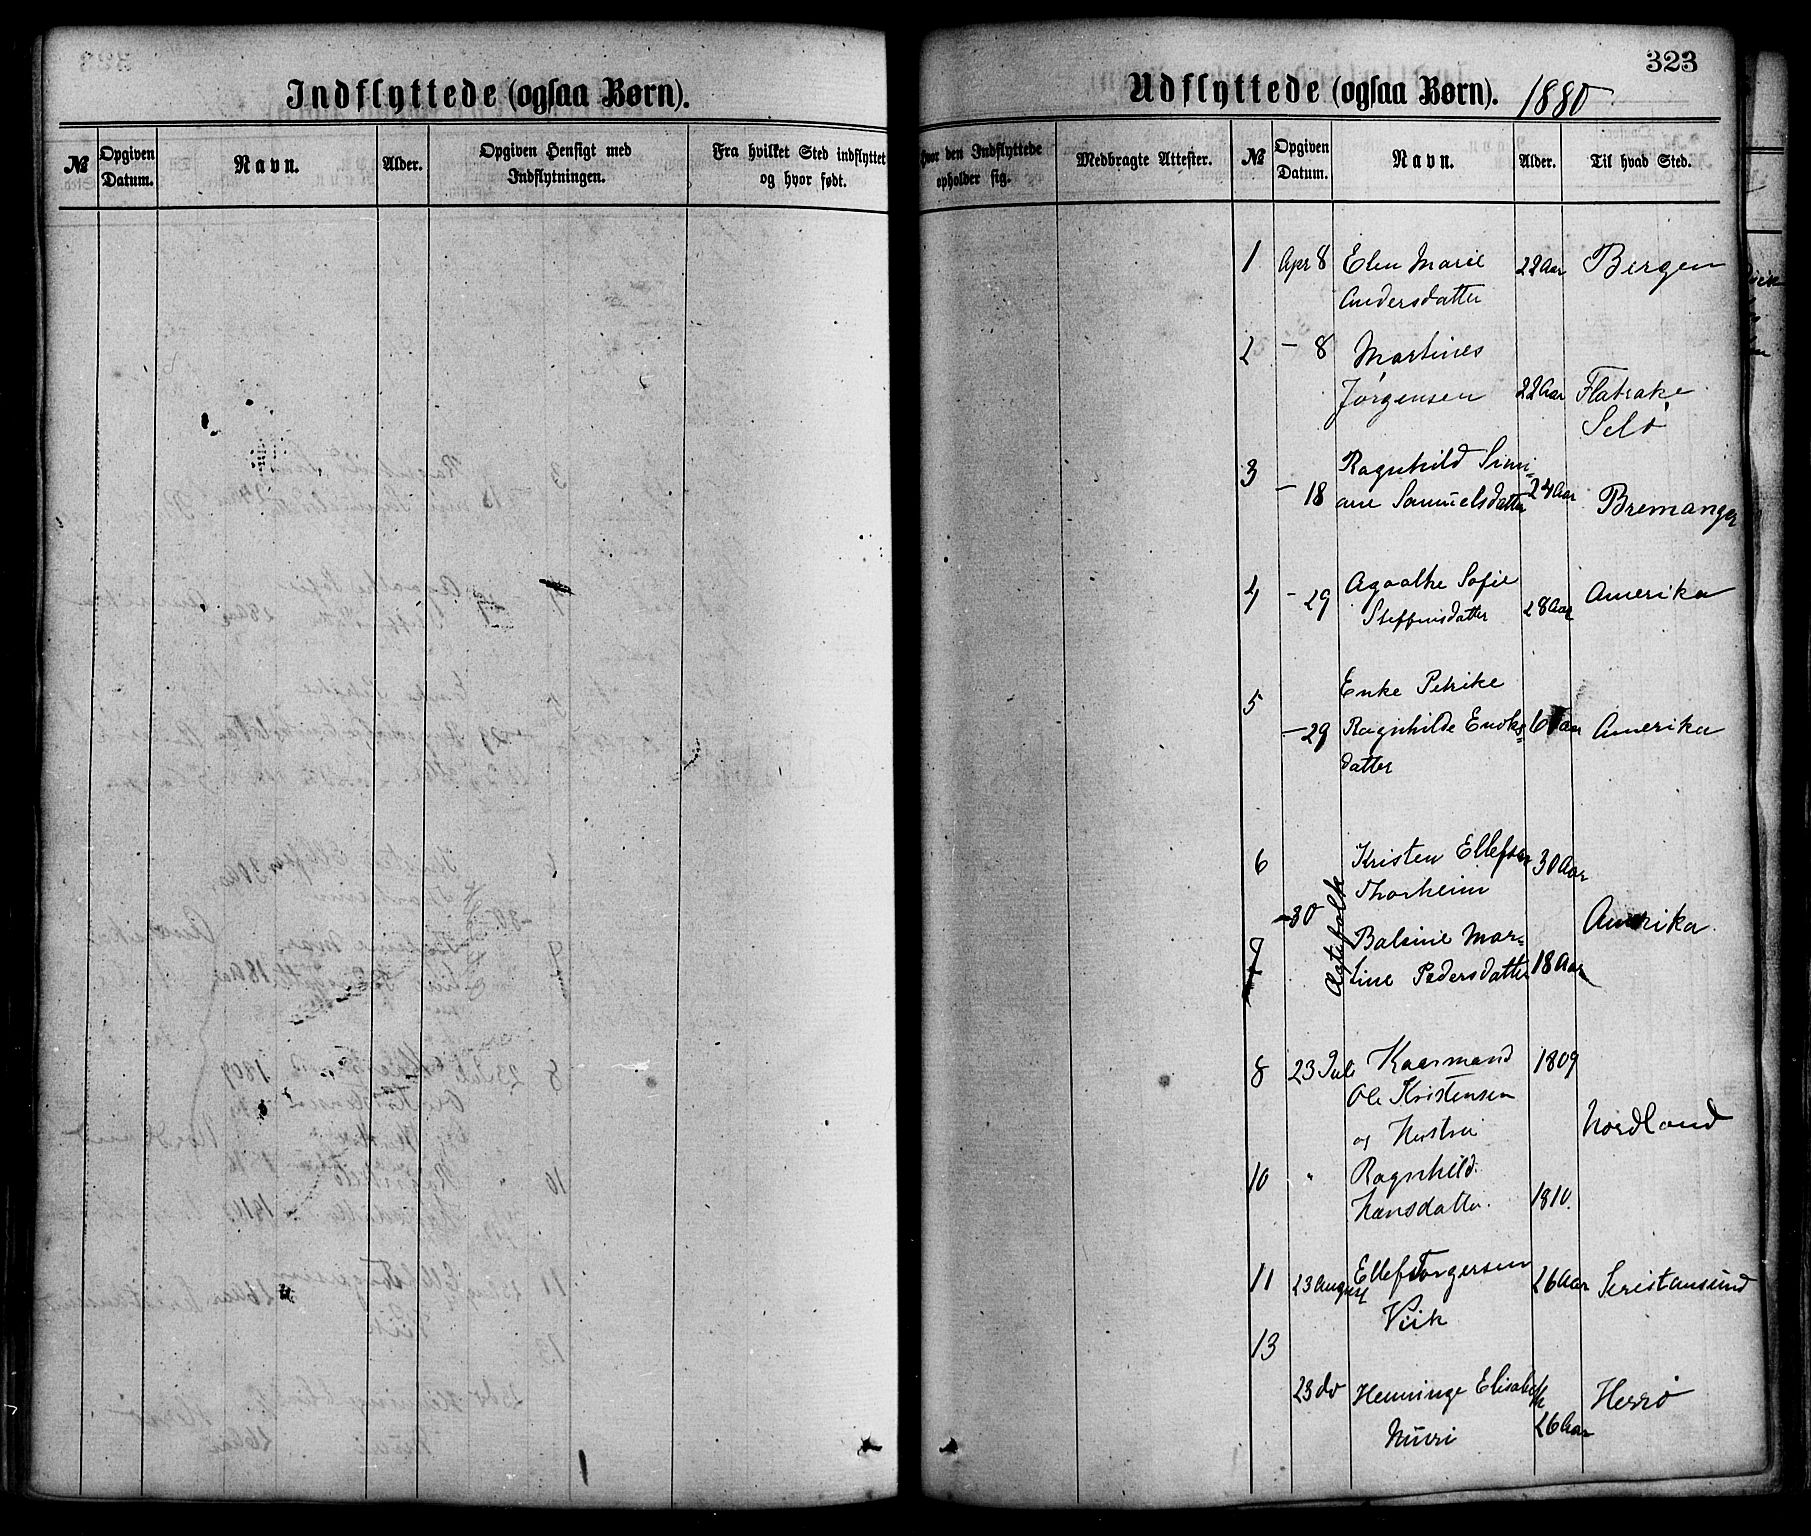 Indflyttede (ogsaa Børn).
№
Opgiven Datum.
Navn.
Alder.
Opgiven Hensigt med Indflytningen.
Fra hvilket Sted indflyttet og hvor født.
323
Udflyttede (ogsaa Børn). 1880
Hvor den Indflyttede opholder sig.
Medbragte Attester.
№
Opgiven Datum.
Navn.
Alder.
Til hvad Sted.
1 Apr 8 Elen Marie 22 Aar Bergen
Andersdatter
2 - 8 Martines
Jørgensen 22 Aar Flatrake
Selø
3 Ragnhild Simi-
- 18 ane Samuelsdatter 24 Aar Bremanger
4 - 29 Agaathe Sofie Amerika
Steffensdatter 28 Aar
5 Enke Petrike
- 29 Ragnhilde Enoks= 61 aar Amerika
datter
6 Kristen Ellefsen 30 Aar
Thorheim
- 30 Ægtefolk Amerika
7 Balsine Mar=
tine Pedersdatter 18 Aar
8 23 Juli Kaarmand 1809
Ole Kristensen
og Hustru Nordland
10 " Ragnhild
Hansdatter. 1810.
11 23 August Ellef Torgersen 26 Aar Kristansund
Viik
13
23 do Henninge Elisabeth Herrø
Muri 26 Aar